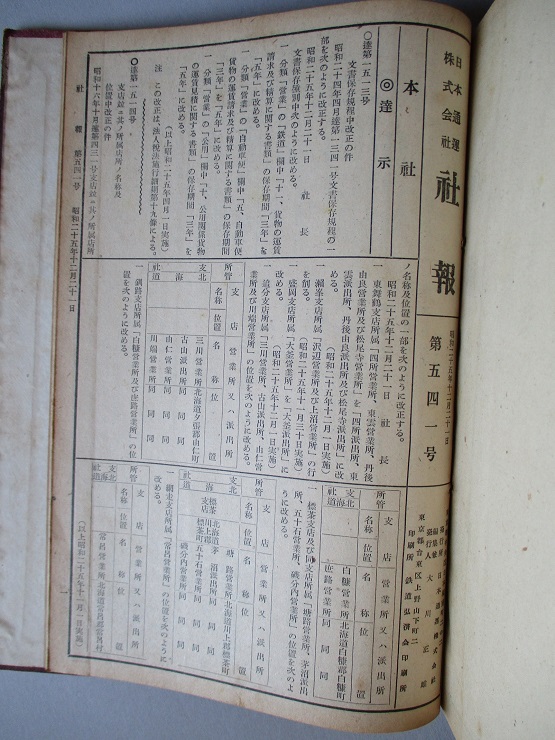 日本通運
株式会社
社報
昭和二十五年十二月二十一日
第五四一号
東京都台東区上野山下町二
印刷所 鉄道弘済会印刷所
本社
◎達示
○達第一五一三号
文書保存規程中改正の件
昭和二十四年四月達第一三四号文書保存規程の一
部を次のように改正する。
昭和二十五年十二月二十一日 社長
文書保存種別中次のように改める。
一 分類「営業」の「鉄道」欄中「十、貨物の運賃
請求及び精算に関する書類」の保存期間「三年」を
「五年」に改める。
一 分類「営業」の「自動車便」欄中「五、自動車便
貨物の運賃請求及び精算に関する書類」の保存期間
「三年」を「五年」に改める。
一 分類「営業」の「公用」欄中「十、公用関係貨物
の運賃見積に関する書類」の保存期間「三年」を
「五年」に改める。
(以上昭和二十五年四月一日実施)
注 この改正は、法人税法施行細則第十九條による。
○達第一五一四号
支店並ニ其ノ所属店所ノ名称及
位置中改正の件
昭和十六年十月達第四三一号支店並ニ其ノ所属店所
ノ名称及位置の一部を次のように改正する。
昭和二十五年十二月二十一日 社長
一 東舞鶴支店所属「四所営業所、東雲営業所、丹後
由良営業所及び松尾寺営業所」を「四所派出所、東
雲派出所、丹後由良派出所及び松尾寺派出所」に改
める。
(昭和二十五年十二月一日実施)
一 瀬峯支店所属「沢辺営業所及び上沼営業所」の行
を削る。
(昭和二十五年十一月三十日実施)
一 盛岡支店所属「大釜営業所」を「大釜派出所」に
改める。
(昭和二十五年十二月一日実施)
一 追分支店所属「三川営業所、古山派出所、由仁営
業所及び川端営業所」の位置を次のように改める。
所管支社 支店 営業所又ハ派出所
名称 位置 名称 位置
北海道
三川営業所 北海道夕張郡由仁町
古山派出所 同 同 同
由仁営業所 同 同 同
川端営業所 同 同 同
一 釧路支店所属「白糠営業所及び庶路営業所」の位
置を次のように改める。
所管支社 支店 営業所又ハ派出所
名称 位置 名称 位置
北海道
白糠営業所 北海道白糠郡白糠町
庶路営業所 同 同 同
一 標茶支店及び同支店所属「塘路営業所、茅沼派出
所、五十石営業所、磯分内営業所」の位置を次のよ
うに改める。
所管支社 支店 営業所又ハ派出所
名称 位置 名称 位置
北海道 標茶支店 北海道川上郡標茶町
塘路営業所 北海道川上郡標茶町
茅沼派出所 同 同 同
五十石営業所 同 同 同
磯分内営業所 同 同 同
一 網走支店所属「常呂営業所」の位置を次のように
改める。
所管支社 支店 営業所又ハ派出所
名称 位置 名称 位置
北海道
常呂営業所 北海道常呂郡常呂村
(以上昭和二十五年十一月一日実施)
社報 第五四一号 昭和二十五年十二月二十一日
一